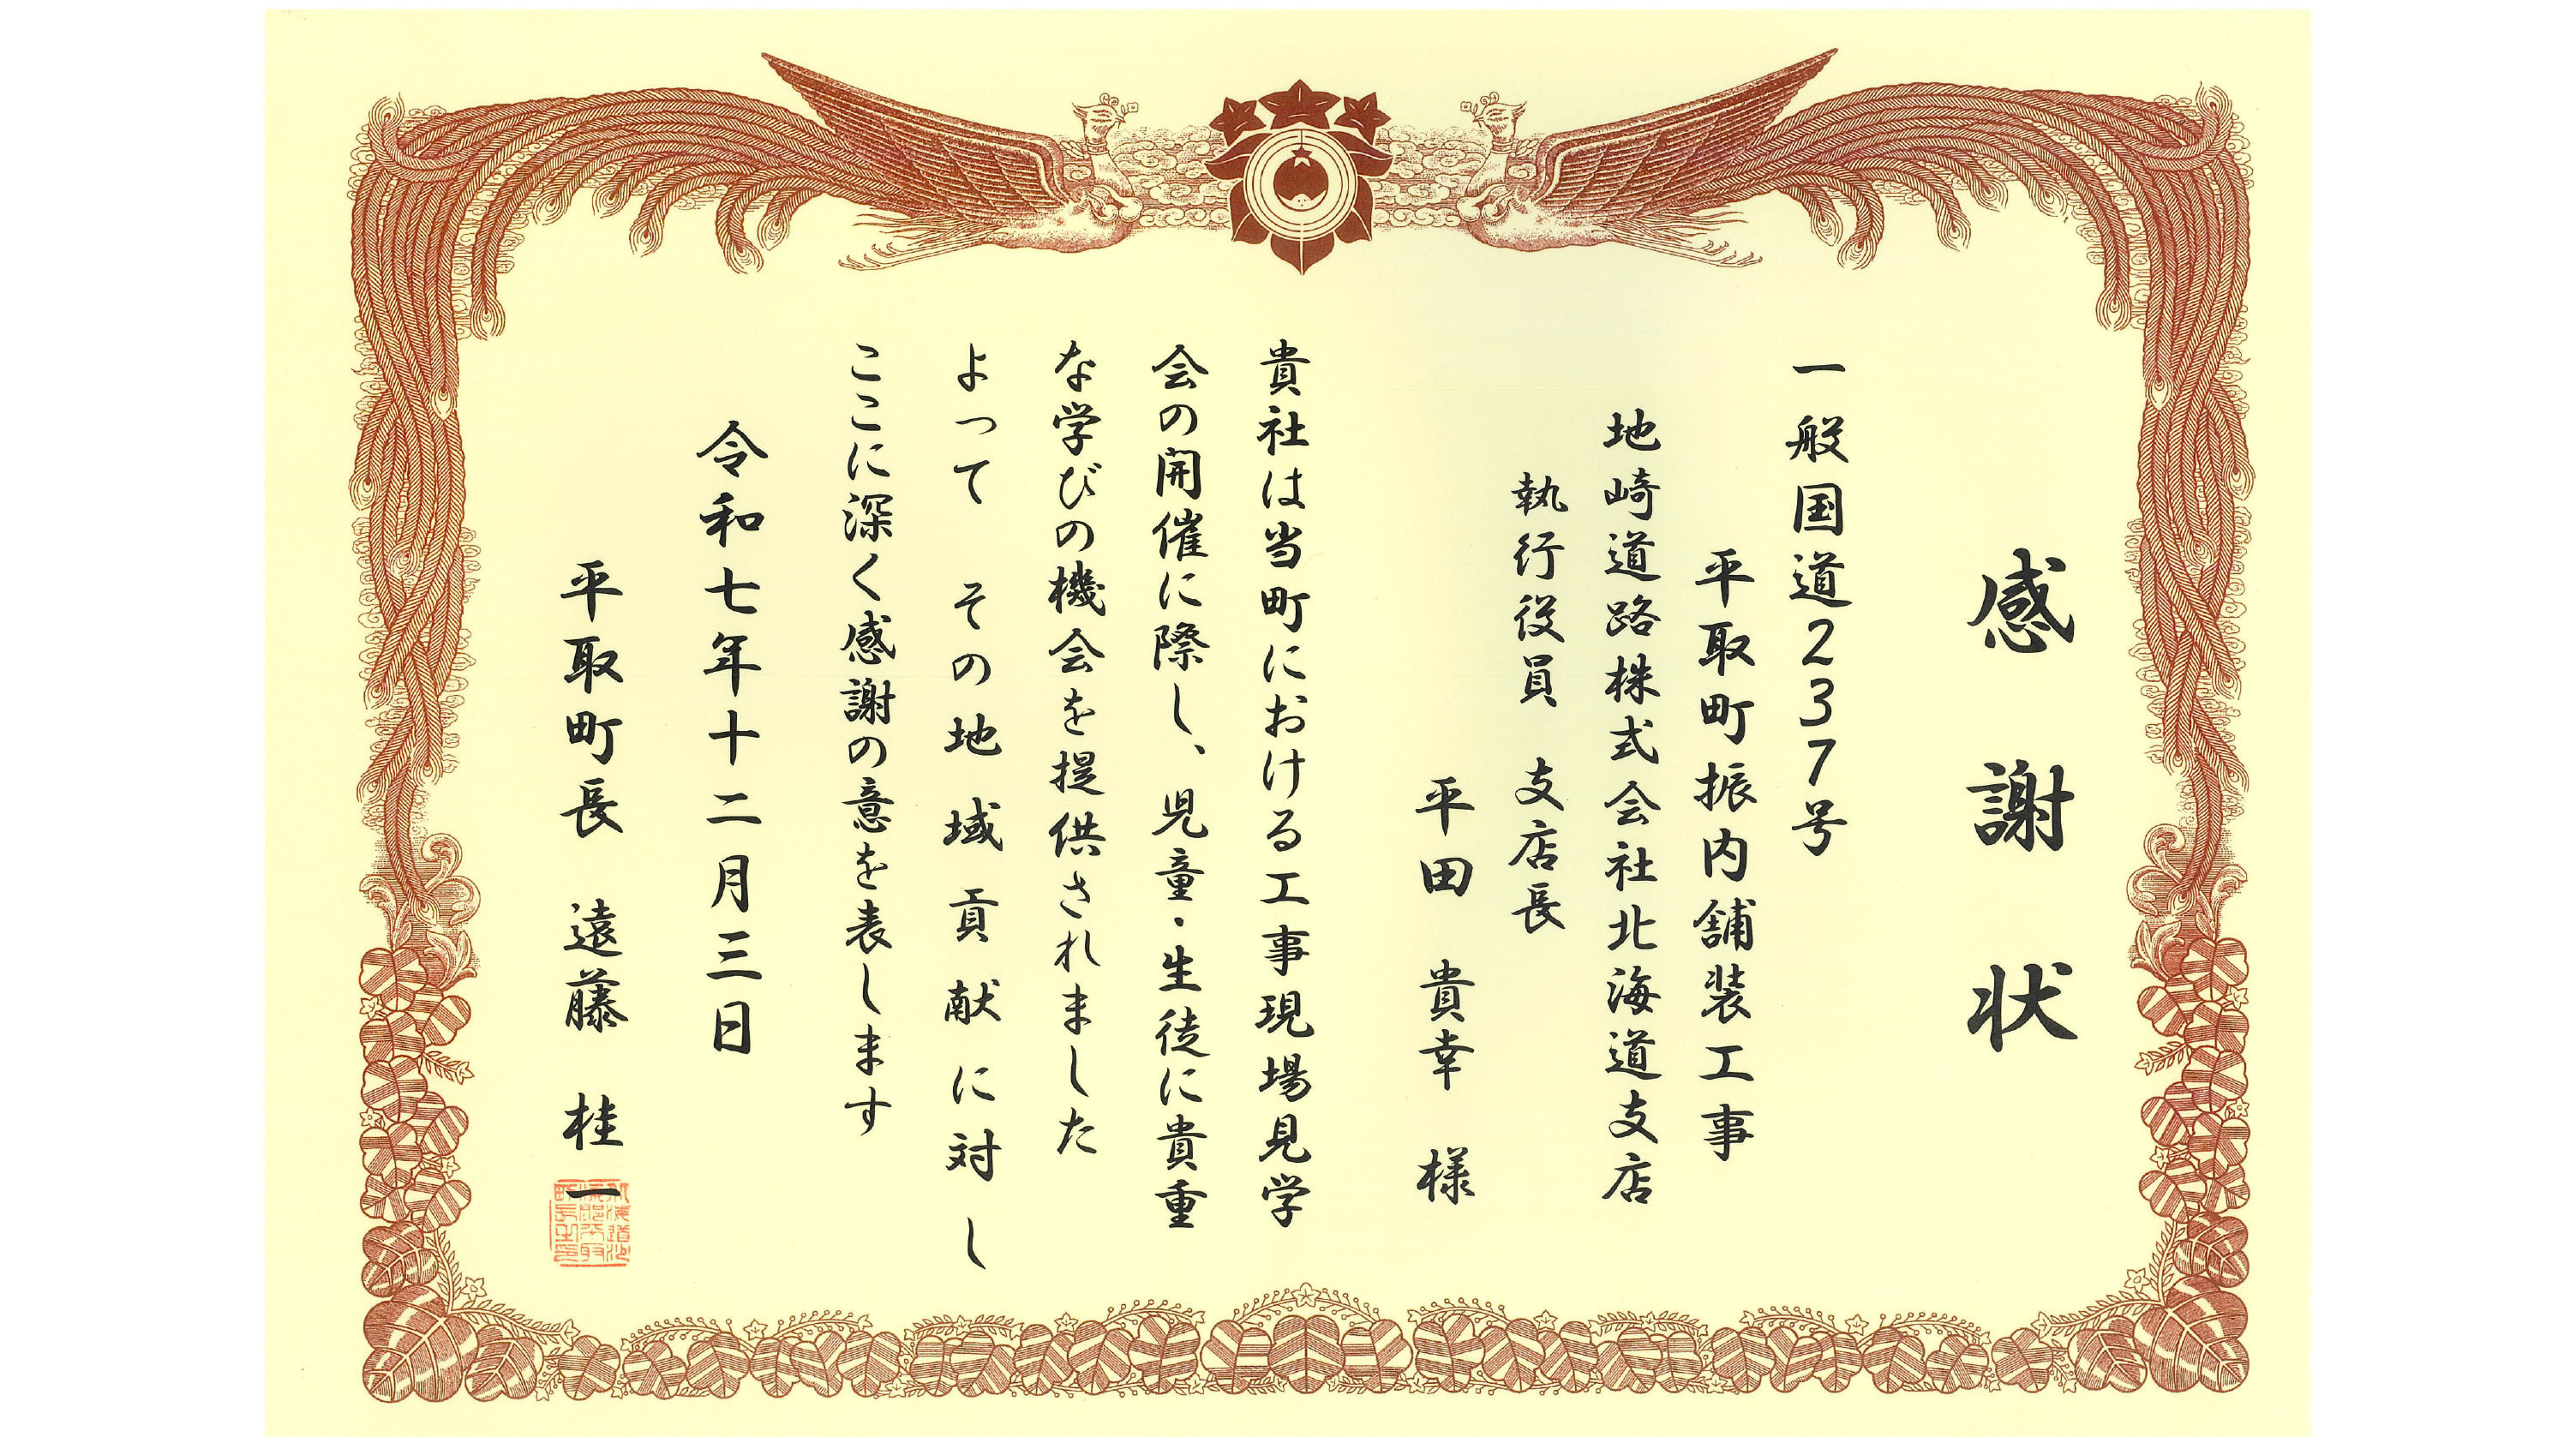 感謝状
一般国道237号
平取町振内舗装工事
地崎道路株式会社北海道支店
執行役員 支店長
平田 貴幸 様
貴社は当町における工事現場見学
会の開催に際し、児童・生徒に貴重
な学びの機会を提供されました
よって その地域貢献に対し
ここに深く感謝の意を表します
令和七年十二月三日
平取町長 遠藤 桂一